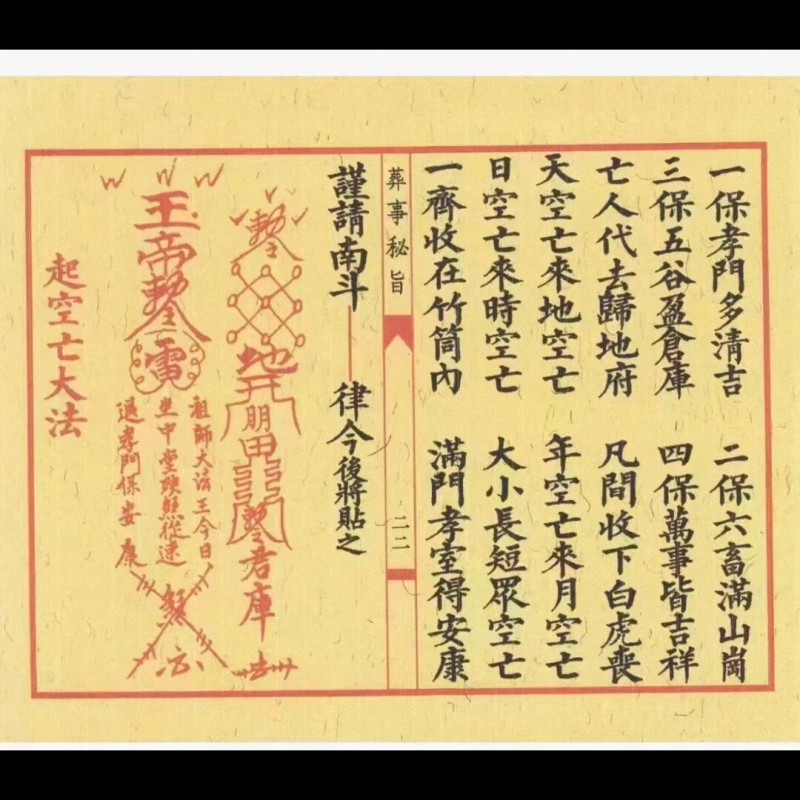 一保孝門多清吉 二保六畜滿山崗
三保五谷盈倉庫 四保萬事皆吉祥
亡人代去歸地府 凡間收下白虎喪
天空亡來地空亡 年空亡來月空亡
日空亡來時空亡 大小長短眾空亡
一齊收在竹筒內 滿門孝室得安康
葬事秘旨 二二
謹請南斗——律今後將貼之
地
庫
玉帝勅令
雷
祖師大法王今日
坐中堂從速
退孝門保安康
起空亡大法